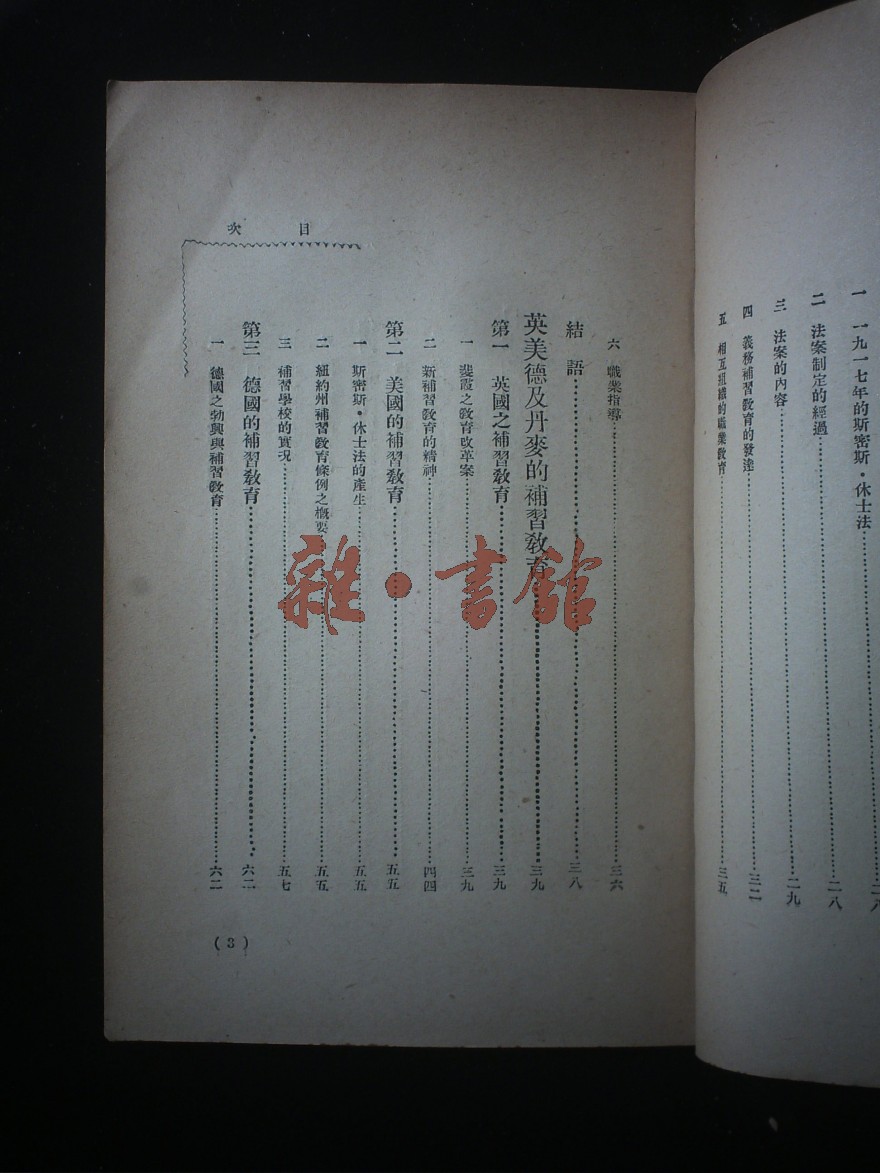 一 一九一七年的斯密斯・休士法……二八
二 法案制定的經過……二八
三 法案的內容……二九
四 義務補習教育的發達……三二
五 相互組織的職業教育……三五
目次
六 職業指導……三六
結語……三八
英美德及丹麥的補習教育……三九
第一 英國之補習教育……三九
一 斐霞之教育改革案……三九
二 新補習教育的精神……四四
第二 美國的補習教育……五五
一 斯密斯・休士法的產生……五五
二 紐約州補習教育條例之概要……五五
三 補習學校的實況……五七
第三 德國的補習教育……六二
一 德國之勃興與補習教育……六二
(3)
雜・書館